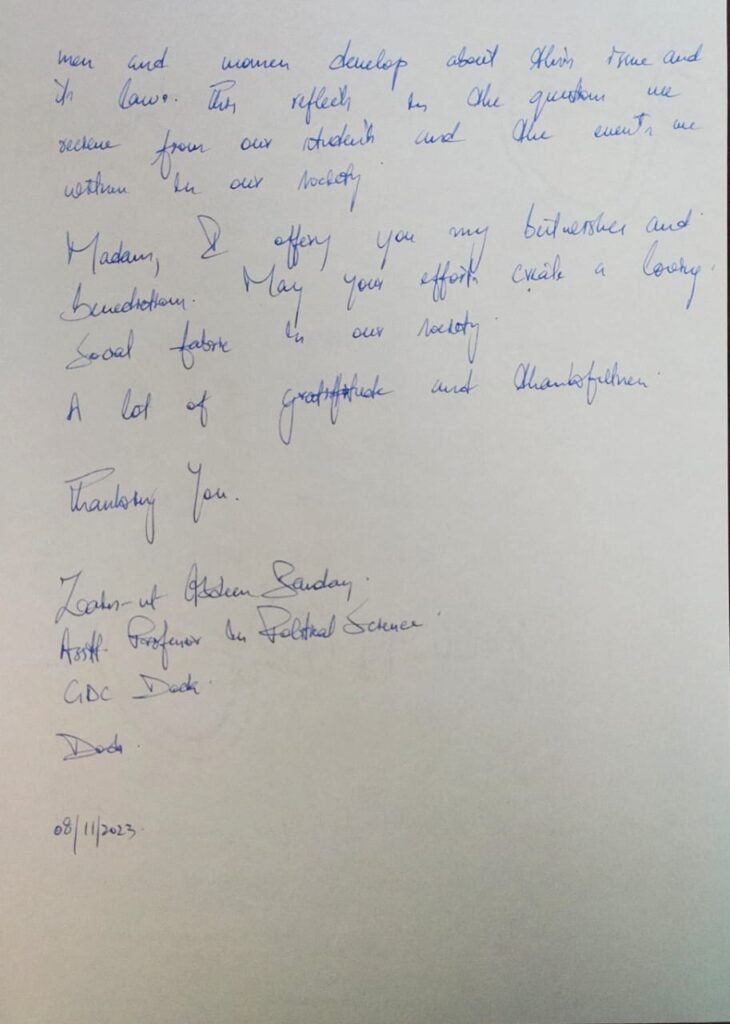 men and women develop about this issue and
its laws. This reflects in the questions we
receive from our students and the events we
witness in our society.
Madam, I offer you my best wishes and
benedictions. May your efforts create a loving
Social fabric in our society.
A lot of gratitude and thankfulness.
Thanking You.
Asstt. Professor in Political Science.
GDC Doda.
Doda.
08/11/2023.